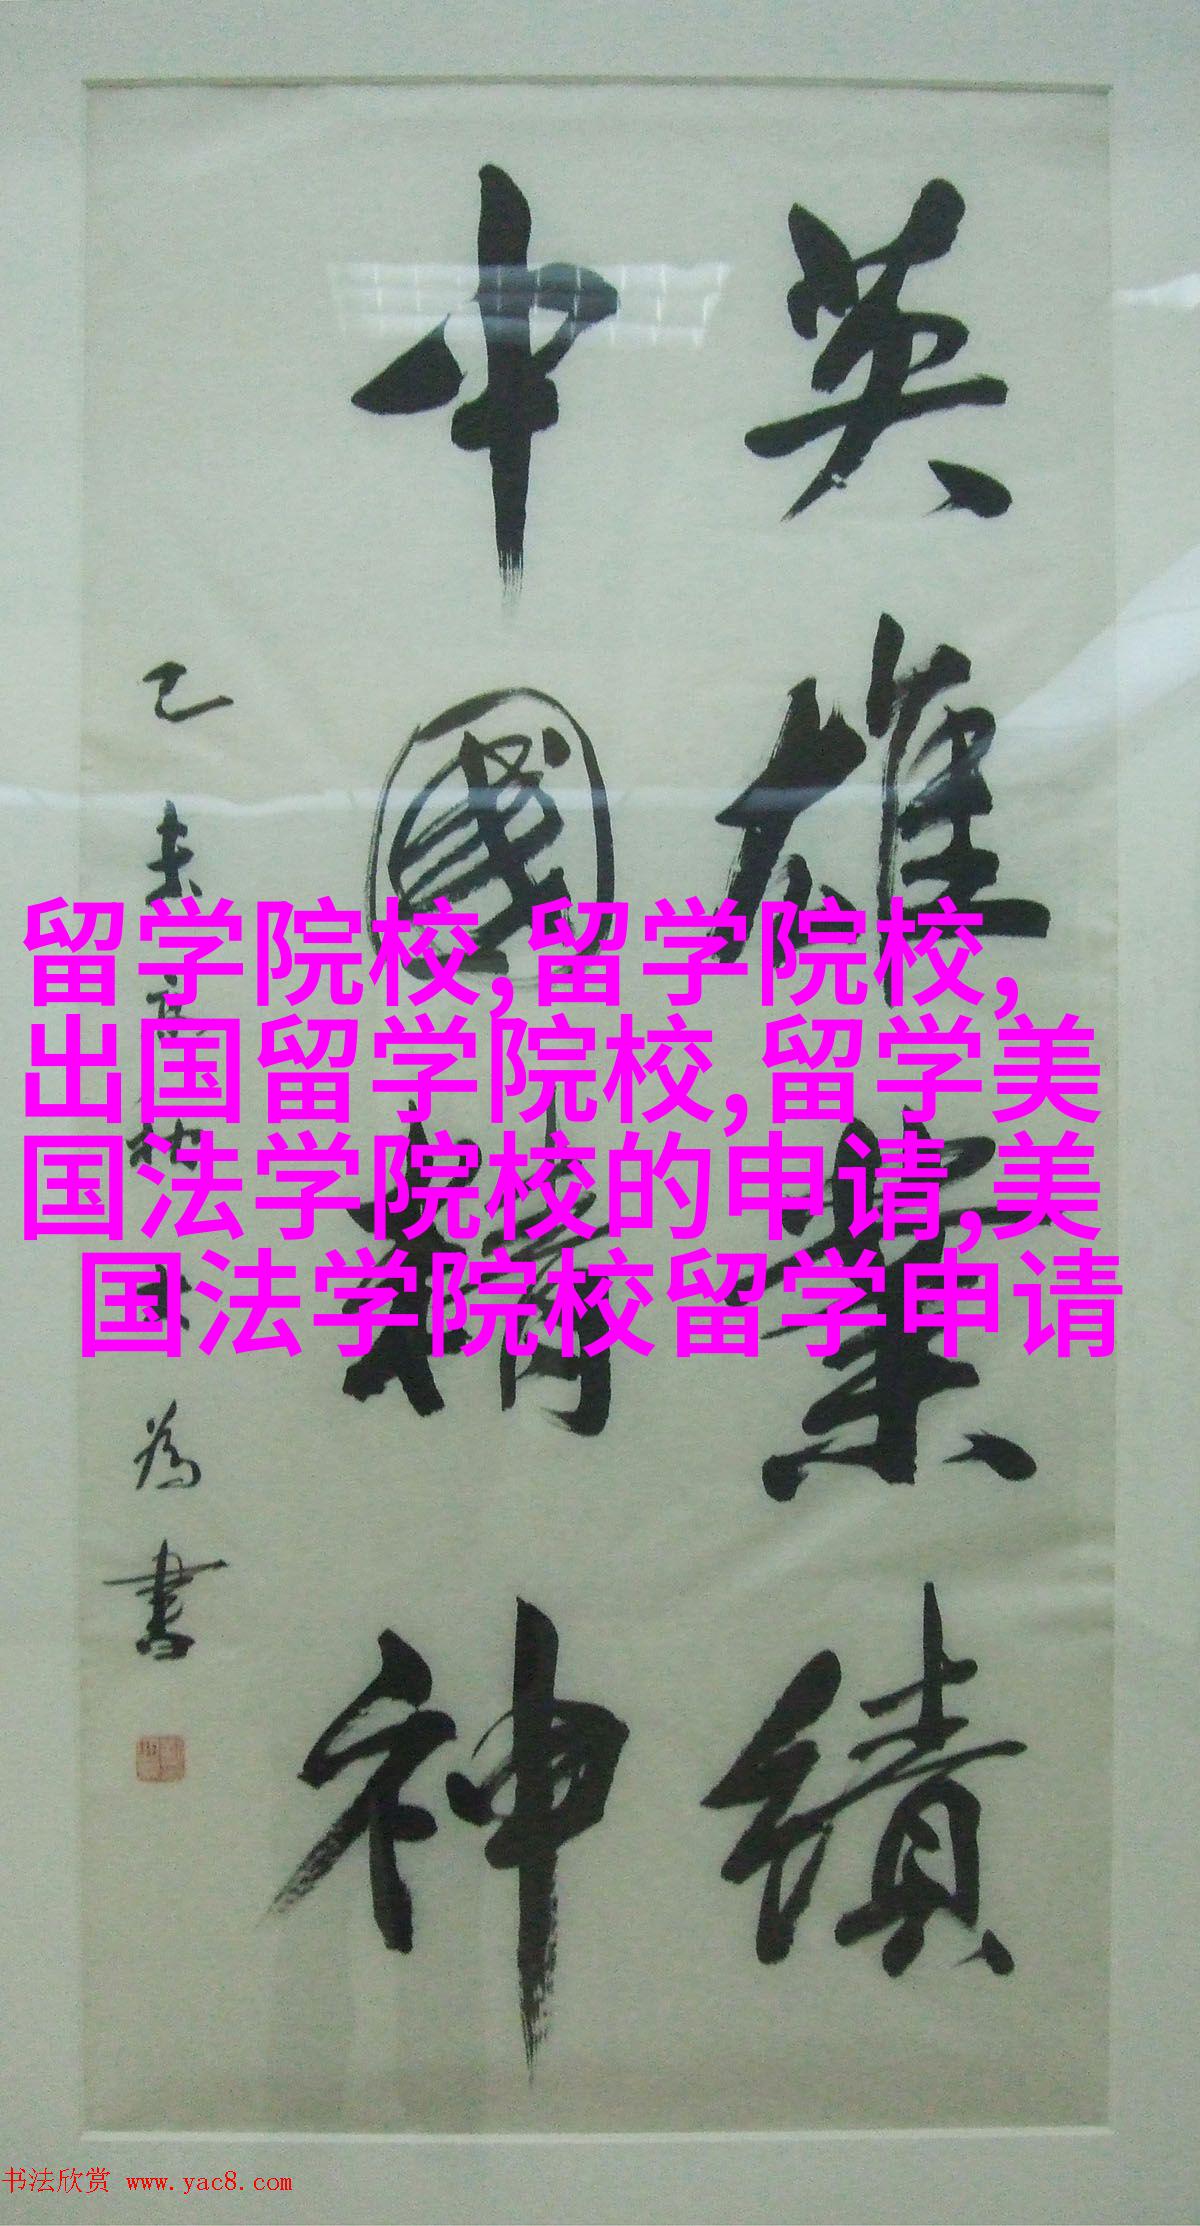 英雄業績
中國精神
己未
為書
留学院校,留学院校,
出国留学院校,留学美
国法学院校的申请,美
国法学院校留学申请
书法欣赏 www.yac8.com